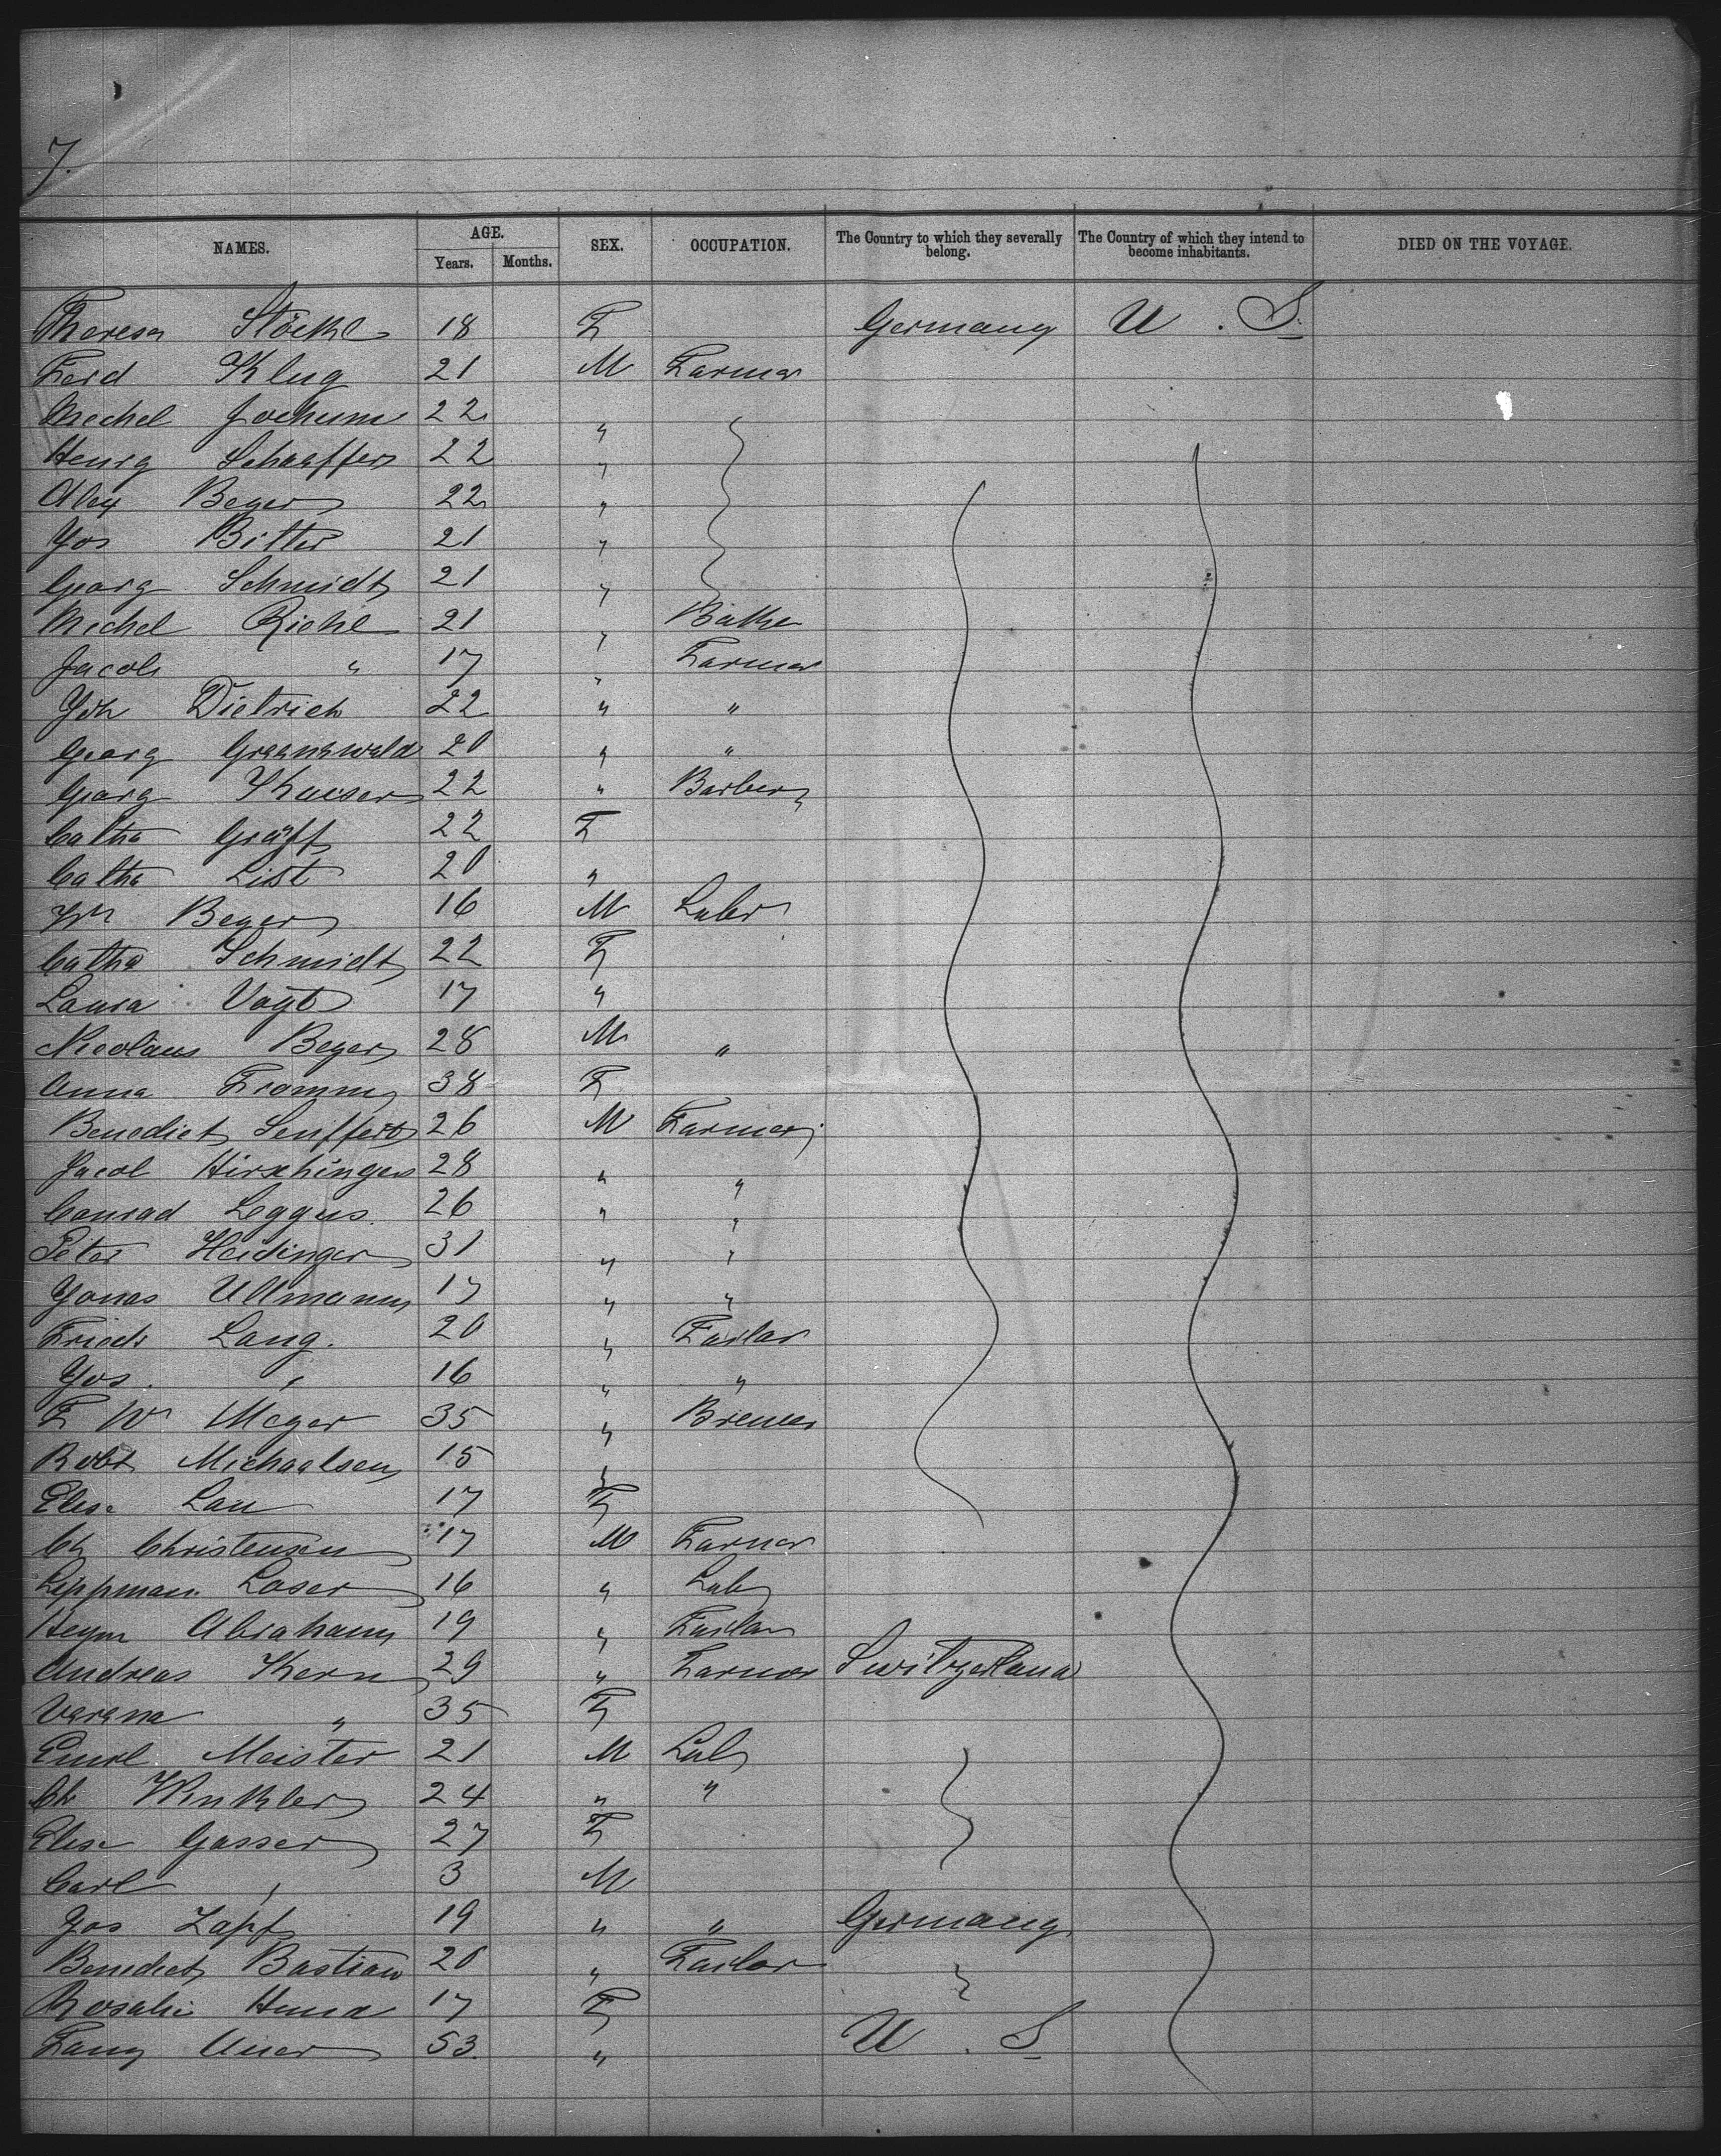 7.
NAMES. AGE. Years. Months. SEX. OCCUPATION. The Country to which they severally belong. The Country of which they intend to become inhabitants. DIED ON THE VOYAGE.
Theresa Stöckl 18 F Germany U. S.
Ferd Klug 21 M Farmer
Michel Jochum 22 "
Henry Schaeffer 22 "
Alex Beyer 22 "
Jos Bitter 21 "
Georg Schmidt 21 "
Michel Riehl 21 "
Jacob " 17 " Farmer
Joh Dietrich 22 " "
Georg 20 " "
Georg Kaiser 22 " Barber
Catha Gräff 22 F
Catha List 20 "
Wm Beyer 16 M Labr
Catha Schmidt 22 F
Laura Vogt 17 "
Nicolaus Beyer 28 M "
Anna Fromm 38 F
Benedict Seuffert 26 M Farmer
Jacob Hirschinger 28 " "
Conrad 26 " "
Peter Heidinger 31 " "
Jonas Ullmann 17 " "
Friedr Lang. 20 " Tailor
Jos. " 16 " "
F Wm Meyer 35 " Brewer
Robt Michaelsen 15 "
Elise Lau 17 F
Ch Christensen 17 M Farmer
Lippman Loser 16 " Lab
Heym Abraham 19 " Tailor
Andreas Kern 29 " Farmer Switzerland
Verena " 35 F
Emil Meister 21 M Lab
Ch Winkler 24 " "
Elise Gasser 27 F
Carl " 3 M
Jos Zapf 19 " " Germany
Benedict Bastian 20 " Tailor
Rosalie 17 F
Fany Auer 53. " U. S